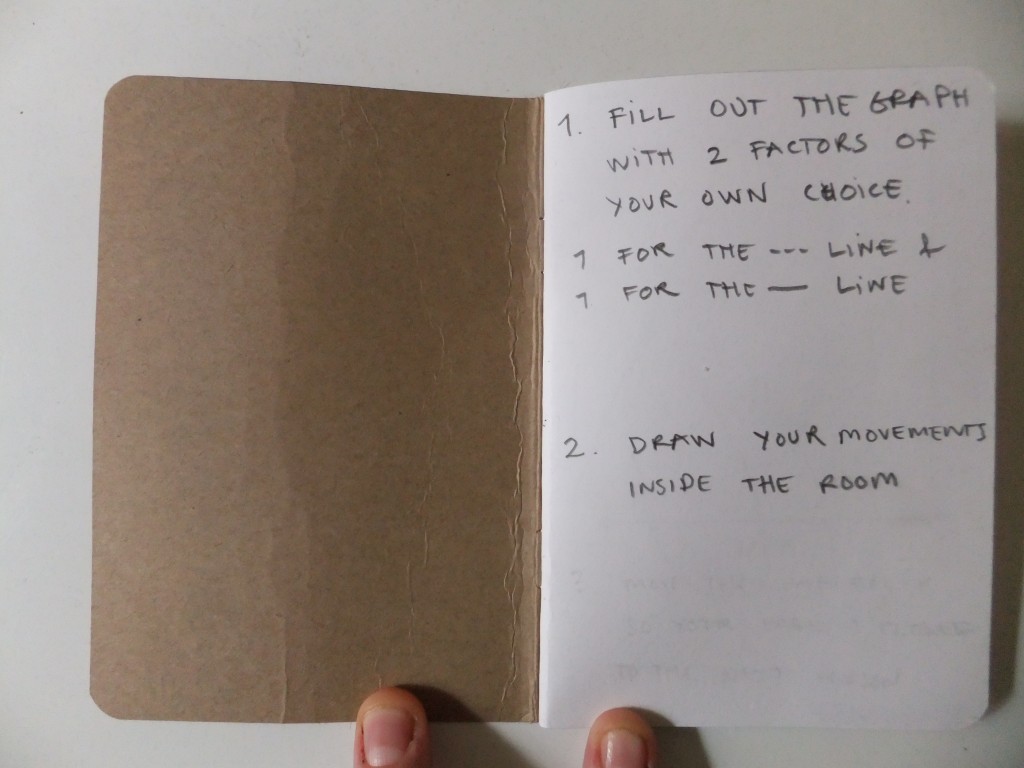 1. FILL OUT THE GRAPH
WITH 2 FACTORS OF
YOUR OWN CHOICE.
1 FOR THE --- LINE &
1 FOR THE — LINE
2. DRAW YOUR MOVEMENTS
INSIDE THE ROOM